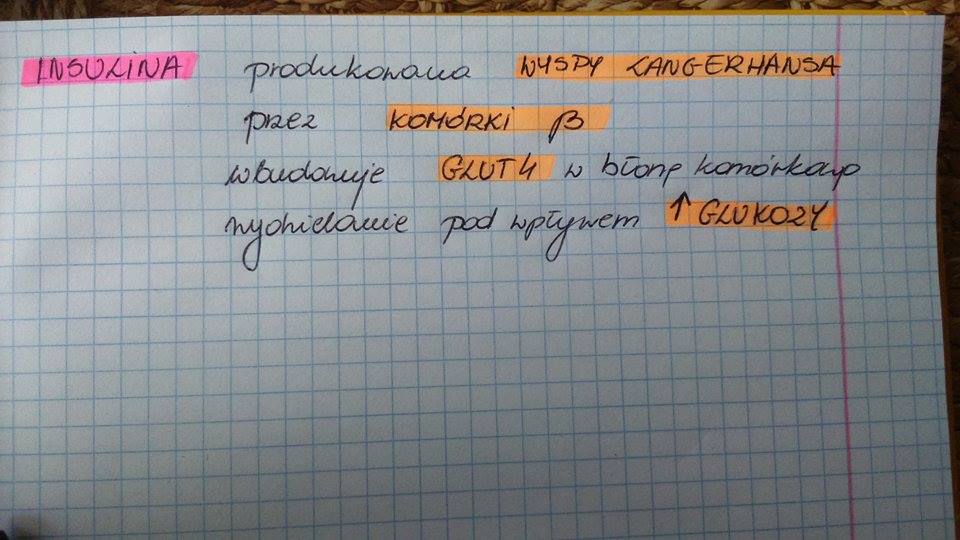 INSULINA produkowana WYSPY LANGERHANSA
przez KOMÓRKI β
wbudowuje GLUT4 w błonę komórkową
wydzielanie pod wpływem ↑ GLUKOZY